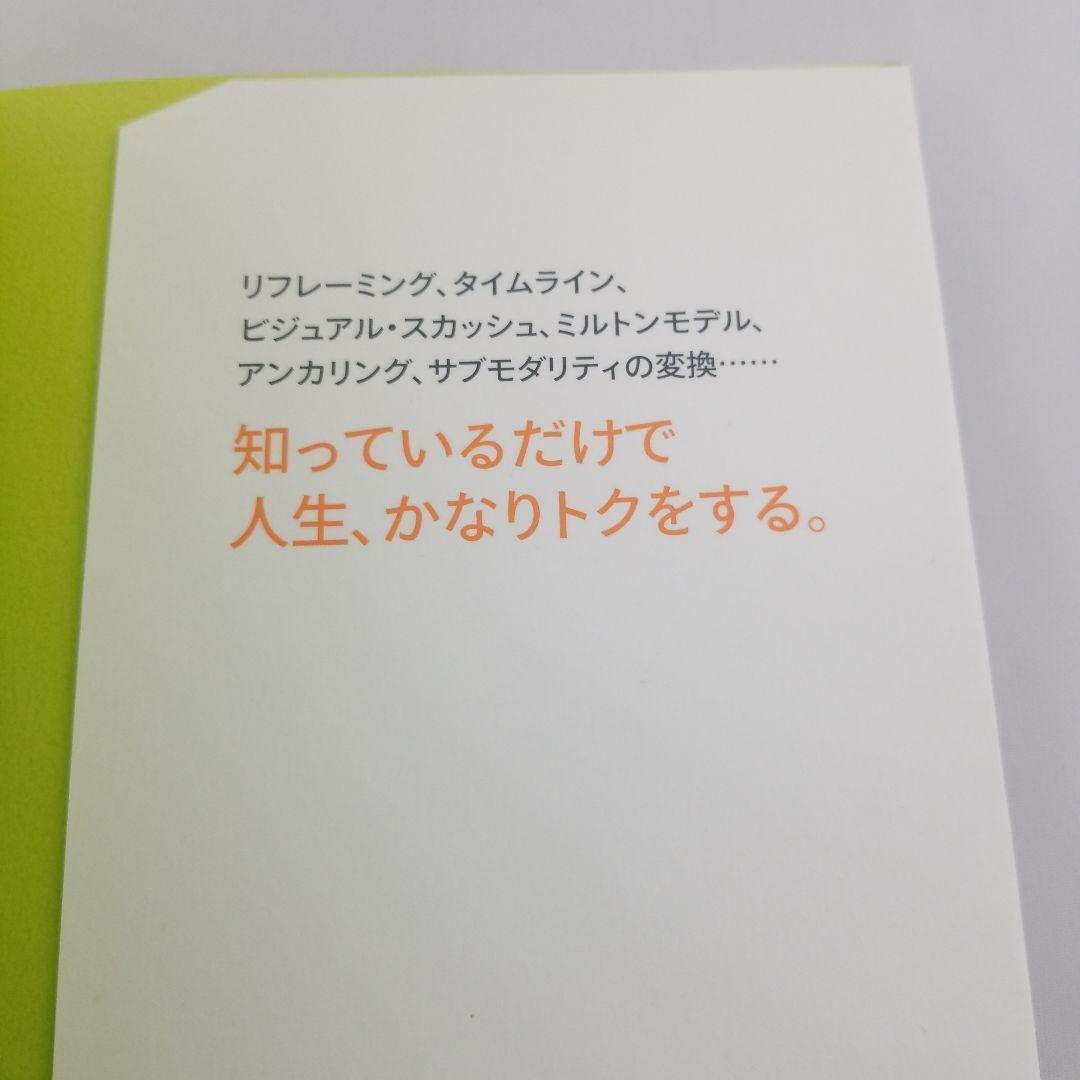 リフレーミング、タイムライン、
ビジュアル・スカッシュ、ミルトンモデル、
アンカリング、サブモダリティの変換……
知っているだけで
人生、かなりトクをする。